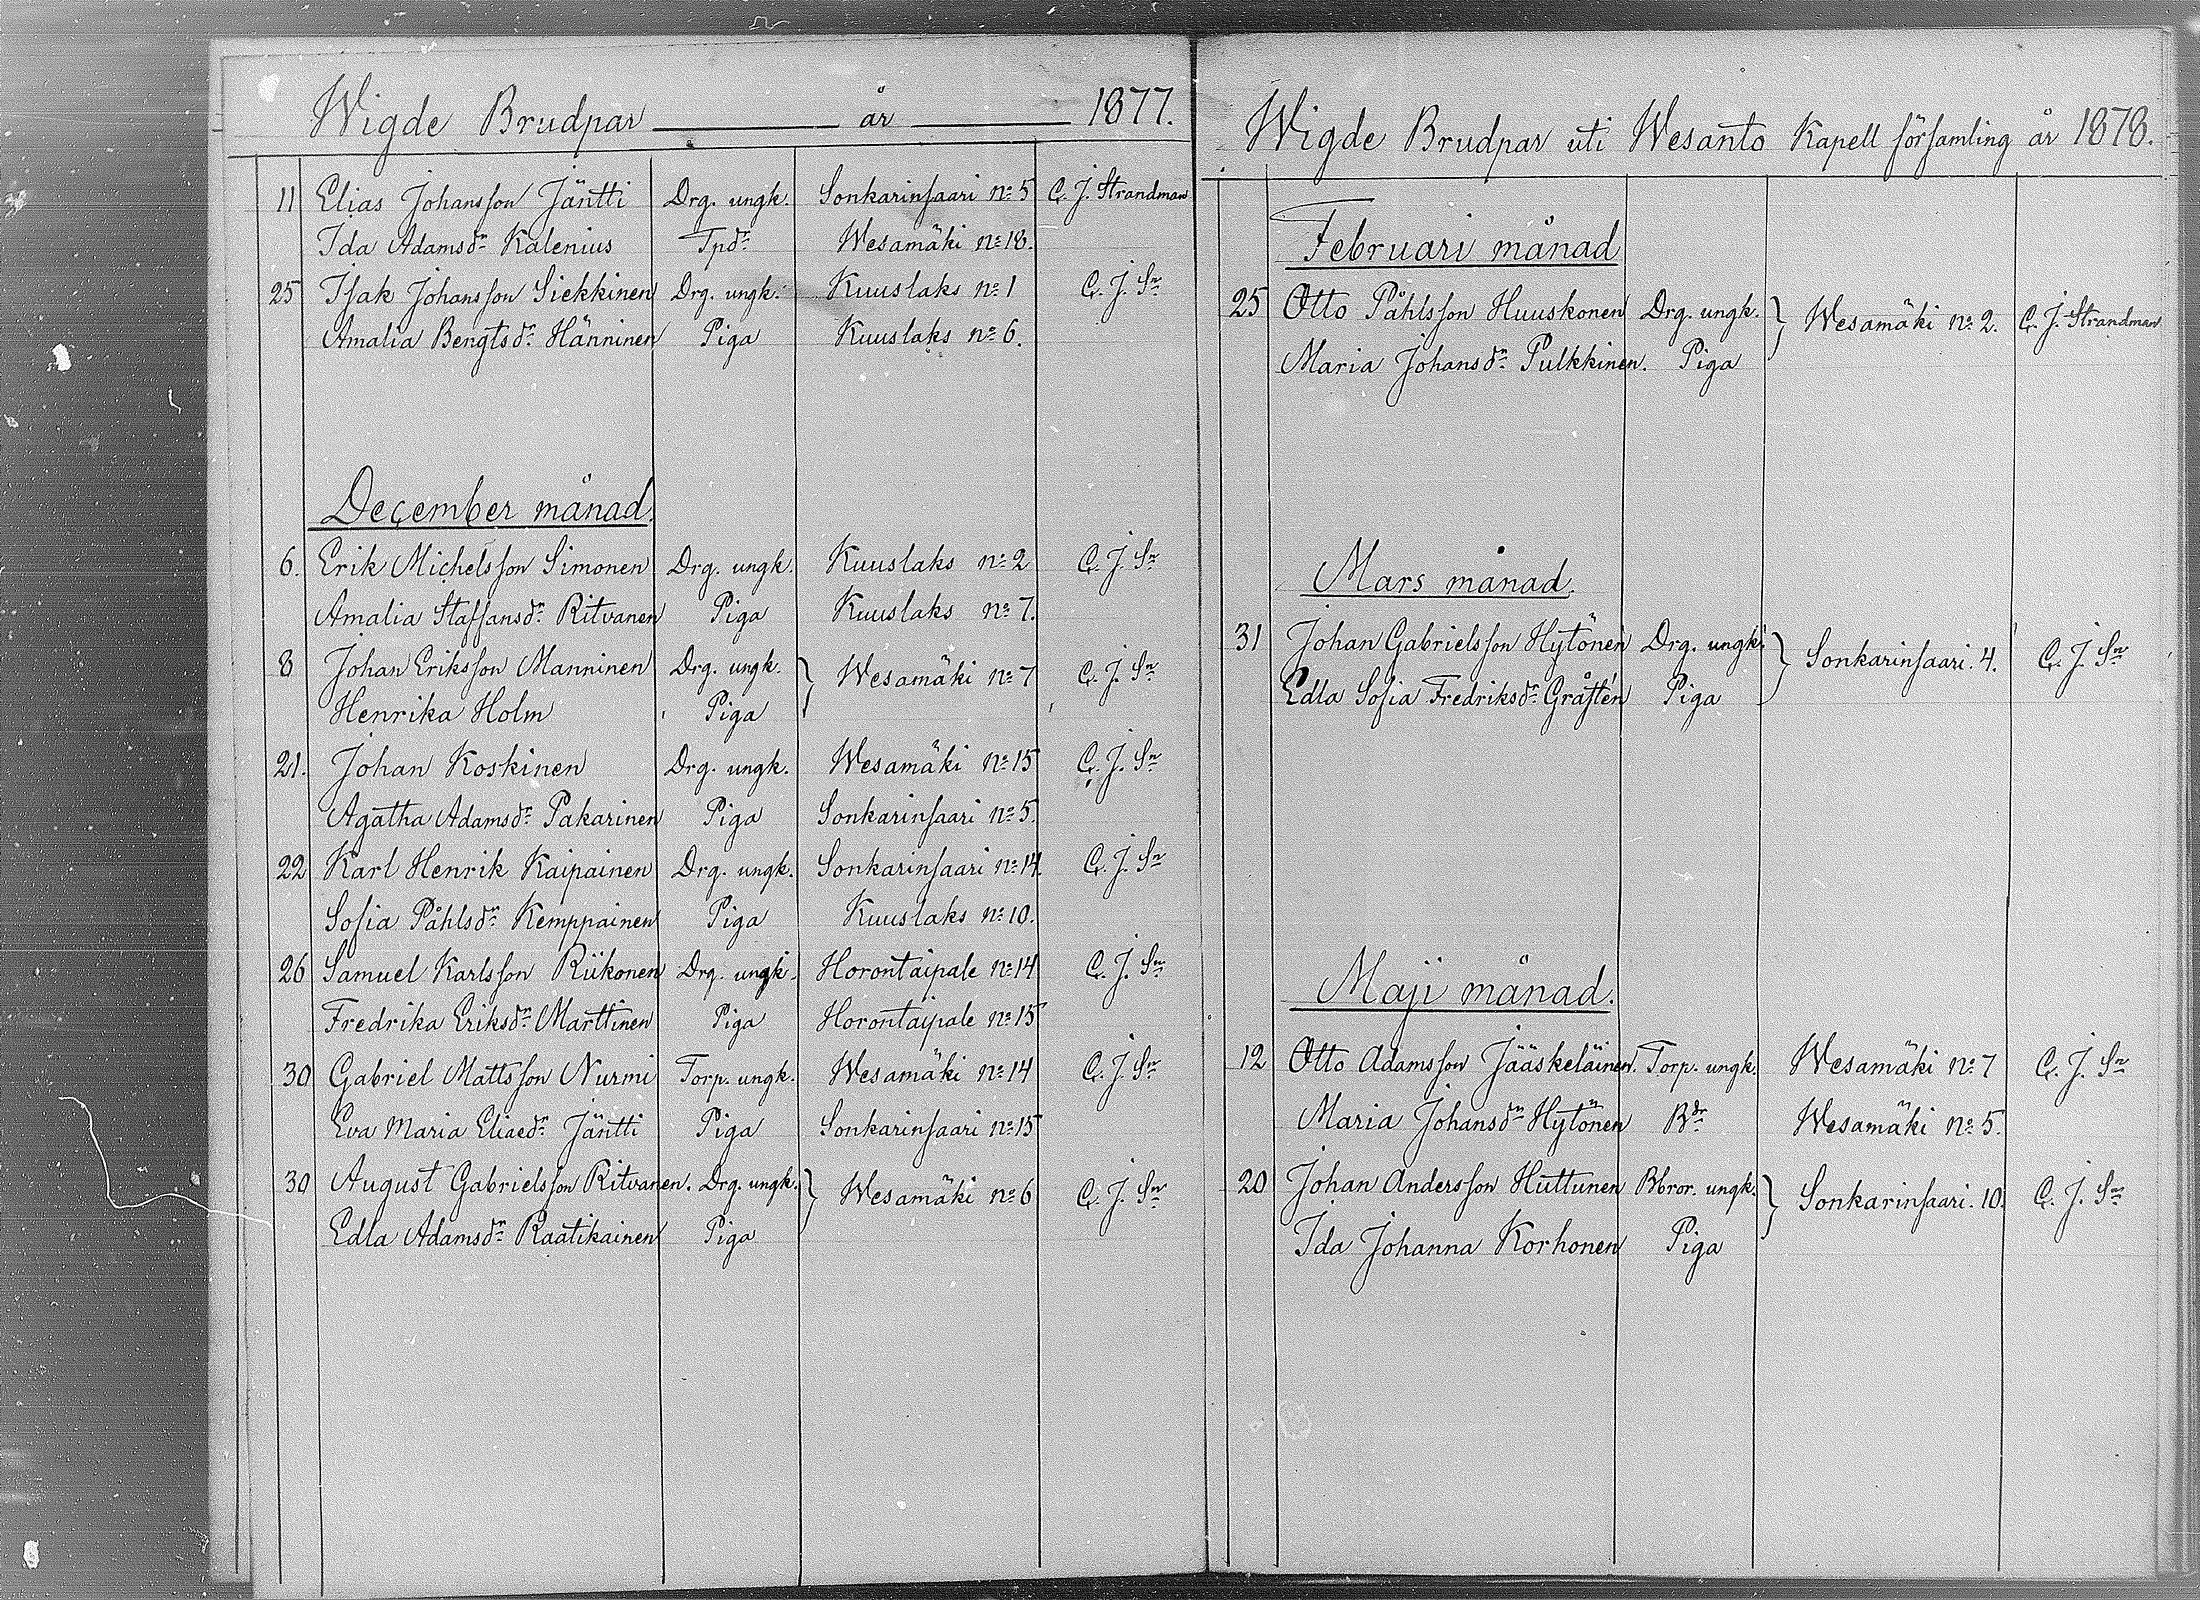 Wigde Brudpar år 1877.
11 Elias Johansson Jäntti Drg. ungk. Sonkarinsaari no 5 C. J. Strandman
Ida Adamsdr Kalenius Tpdr Wesamäki no 18.
25 Isak Johansson Siekkinen Drg. ungk. Kuuslaks no 1 C. J. Sn
Amalia Bengtsdr Hänninen Piga Kuuslaks no 6.
December månad.
6. Erik Michelsson Simonen Drg. ungk. Kuuslaks no 2 C. J. Sn
Amalia Staffansdr Ritvanen Piga Kuuslaks no 7.
8 Johan Eriksson Manninen Drg. ungk. } Wesamäki no 7 C. J. Sn
Henrika Holm Piga
21. Johan Koskinen Drg. ungk. Wesamäki no 15 C. J. Sn
Agatha Adamsdr Pakarinen Piga Sonkarinsaari no 5.
22 Karl Henrik Kaipainen Drg. ungk. Sonkarinsaari no 14. C. J. Sn
Sofia Påhlsdr Kemppainen Piga Kuuslaks no 10.
26 Samuel Karlsson Riikonen Drg. ungk. Horontaipale no 14 C. J. Sn
Fredrika Eriksdr Marttinen Piga Horontaipale no 15
30 Gabriel Mattsson Nurmi Torp. ungk. Wesamäki no 14 C. J. Sn
Eva Maria Eliaedr Jäntti Piga Sonkarinsaari no 15
30 August Gabrielsson Ritvanen. Drg. ungk. } Wesamäki no 6 C. J. Sn
Edla Adamsdr Raatikainen Piga
Wigde Brudpar uti Wesanto Kapell församling år 1878.
Februari månad
25 Otto Påhlsson Huuskonen Drg. ungk. } Wesamäki no 2. C. J. Strandman
Maria Johansdr Pulkkinen. Piga
Mars månad.
31 Johan Gabrielsson Hytönen Drg. ungk. } Sonkarinsaari. 4. C. J. Sn
Edla Sofia Fredriksdr Gråstén Piga
Maji månad.
12 Otto Adamsson Jääskeläinen. Torp. ungk. Wesamäki no 7 C. J. Sn
Maria Johansdr Hytönen Bdr Wesamäki no 5.
20 Johan Andersson Huttunen Bbror. ungk. } Sonkarinsaari. 10. C. J. Sn
Ida Johanna Korhonen Piga